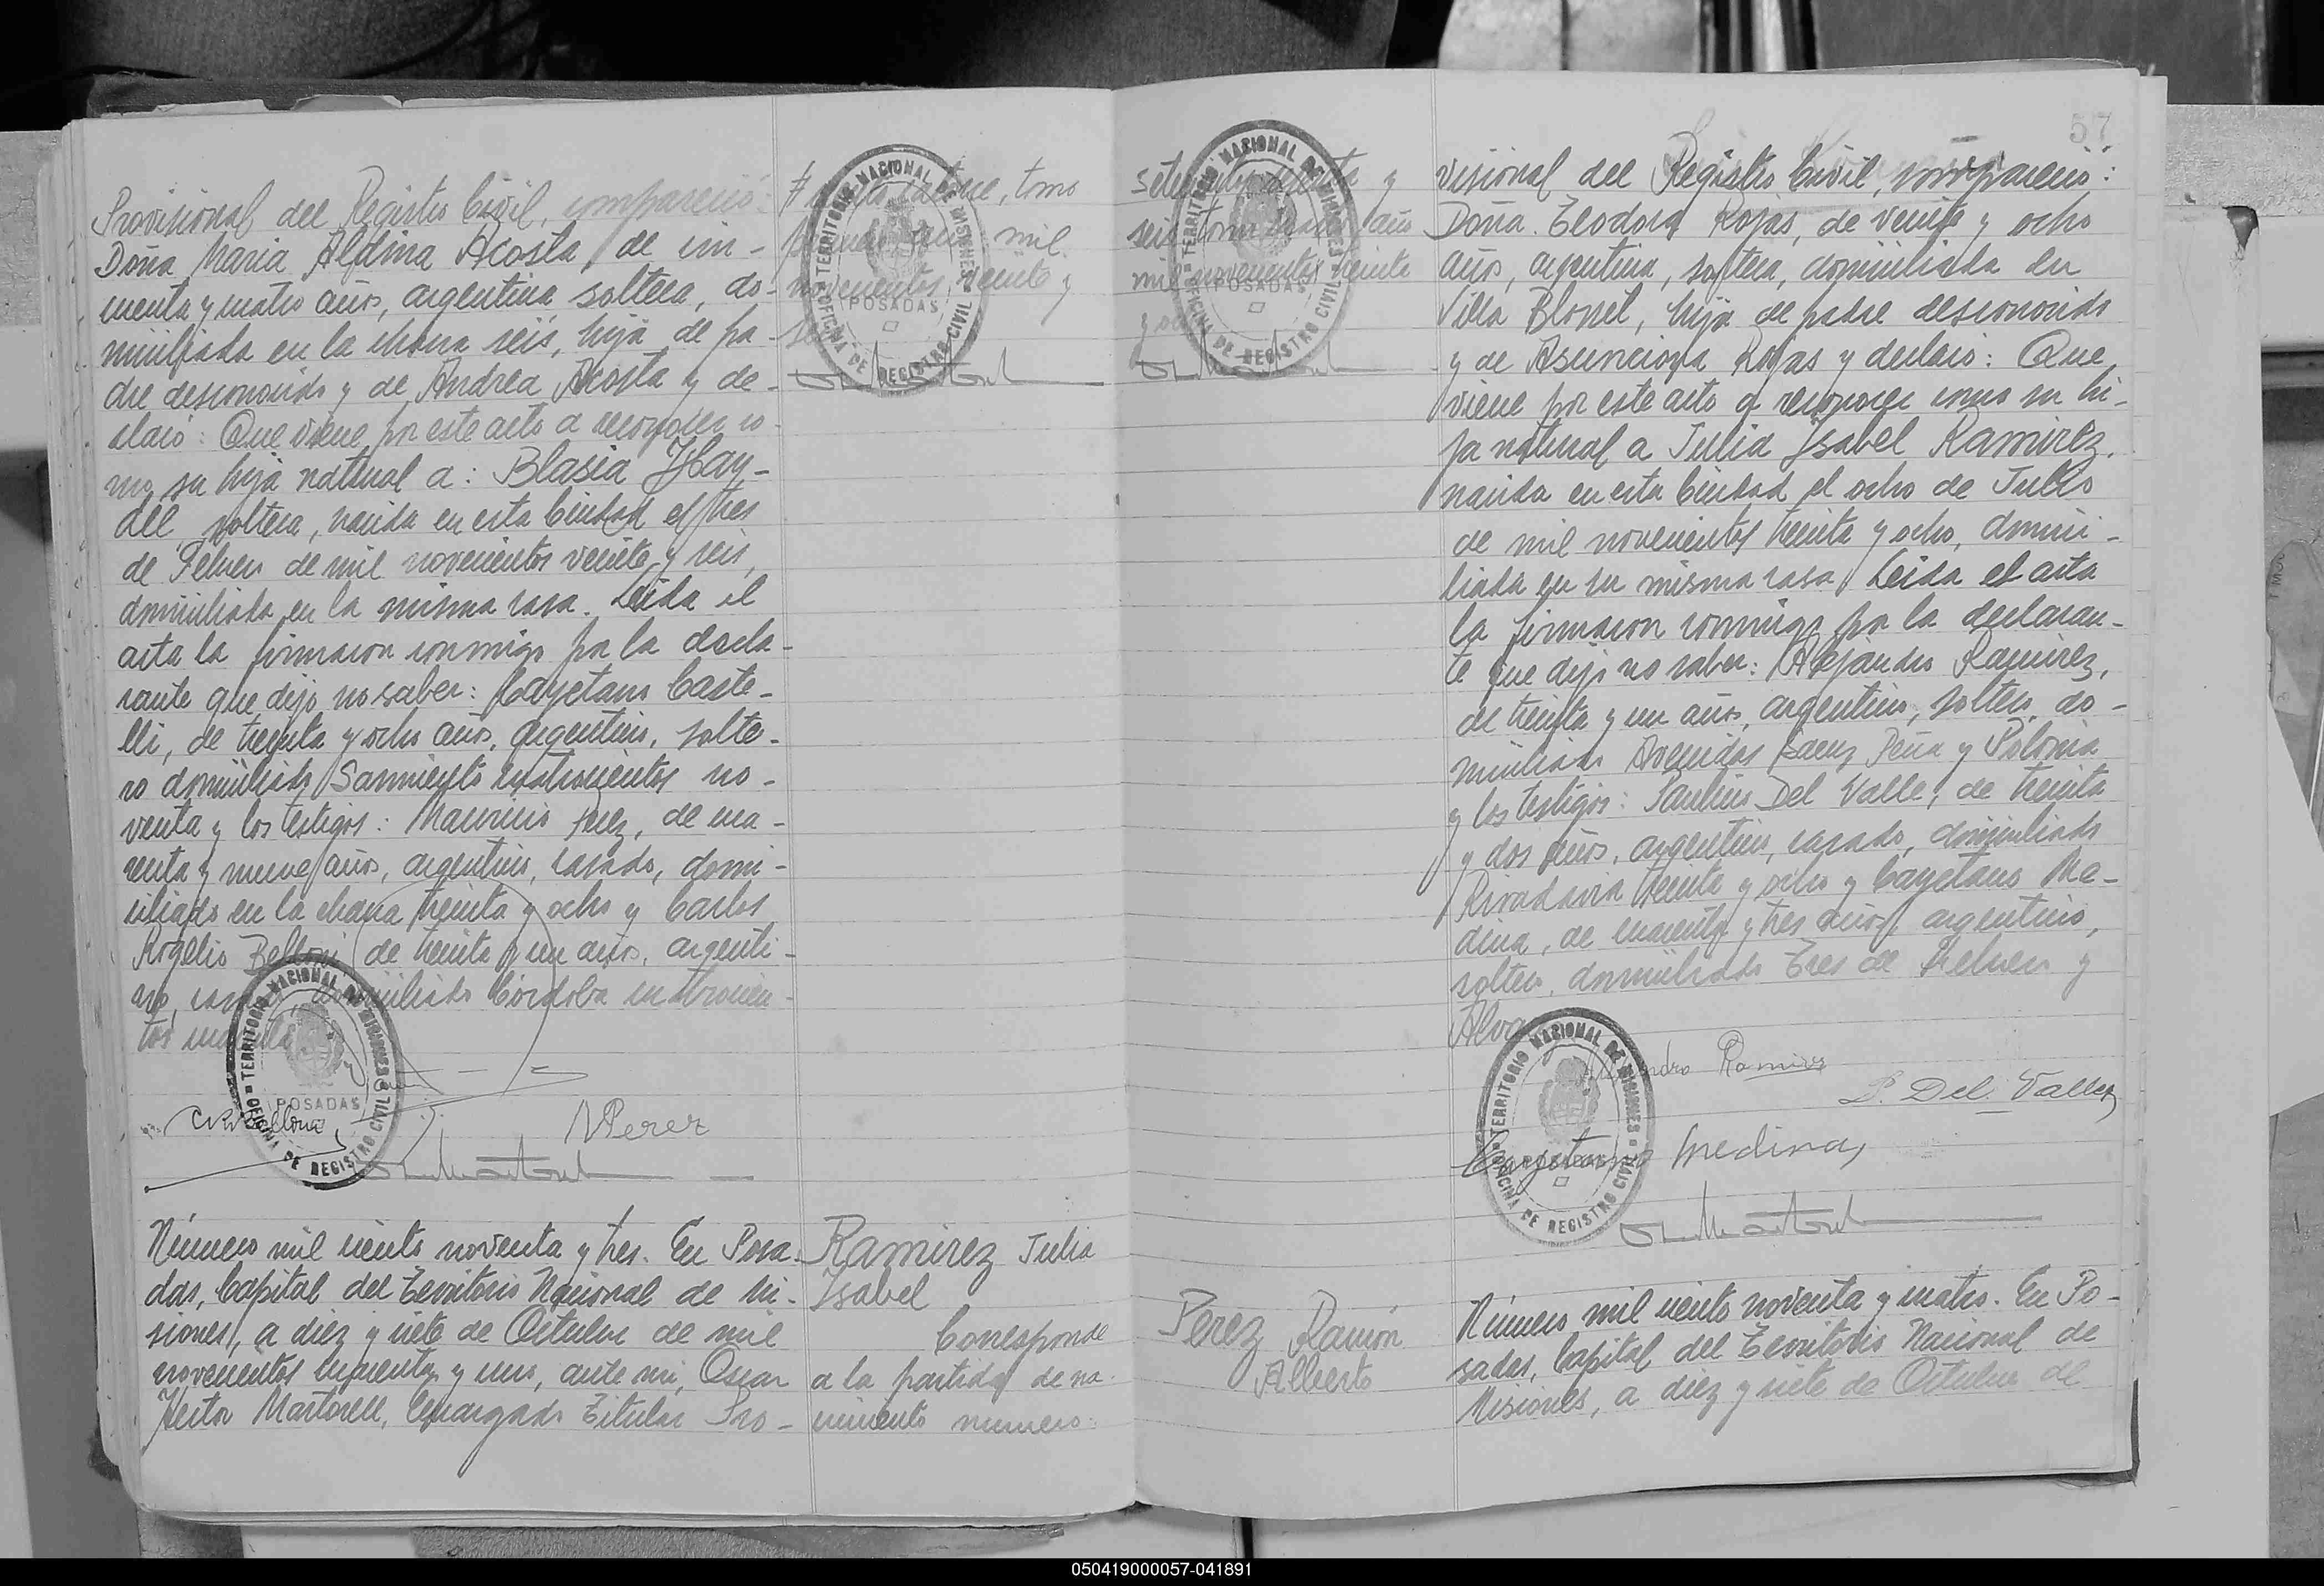 Provisional del Registro Civil, compareció:
Doña Maria Aldina Acosta, de cin-
cuenta y cuatro años, argentina soltera, do-
miciliada en la chacra seis, hija de pa-
dre desconocido y de Andrea Acosta y de-
claró: Que viene por este acto a reconocer co-
mo su hija natural a: Blasia Hay-
dee soltera, nacida en esta Ciudad el tres
de Febrero de mil novecientos veinte y seis,
domiciliada en la misma casa. Leida el
acta la firmaron conmigo por la decla-
rante que dijo no saber: Cayetano Caste-
lli, de treinta y ocho años, argentino, solte-
ro domiciliado Sarmiento cuatrocientos no-
venta y los testigos: Mauricio Perez, de cua-
renta y nueve años, argentino, casado, domi-
ciliado en la chacra treinta y ocho y Carlos
Rogelio Belloni de treinta y un años, argenti-
no, domiciliado Córdoba cuatrocien-
tos
M Perez
Número mil ciento noventa y tres. En Posa-
das, Capital del Territorio Nacional de Mi-
siones, a diez y siete de Octubre de mil
novecientos cincuenta y uno, ante mi, Oscar
Hector Martorell, Encargado Titular Pro-
tomo
mil
novecientos veinte y
seis
TERRITORIO NACIONAL DE MISIONES
POSADAS
OFICINA DE REGISTRO CIVIL
TERRITORIO NACIONAL DE MISIONES
POSADAS
OFICINA DE REGISTRO CIVIL
Ramirez Julia
Isabel
Corresponde
a la partida de na-
cimiento numero
setecientos y
seis tomo año
mil novecientos treinta
y ocho
TERRITORIO NACIONAL DE MISIONES
POSADAS
OFICINA DE REGISTRO CIVIL
Perez Ramón
Alberto
57
visional del Registro Civil, compareció:
Doña Teodora Rojas, de veinte y ocho
años, argentina, soltera, domiciliada en
Villa Blosset, hija de padre desconocido
y de Asunciona Rojas y declaró: Que
viene por este acto a reconocer como su hi-
ja natural a Julia Isabel Ramirez,
nacida en esta Ciudad el ocho de Julio
de mil novecientos treinta y ocho, domici-
liada en su misma casa. Leida el acta
la firmaron conmigo por la declaran-
te que dijo no saber: Alejandro Ramirez,
de treinta y un años, argentino, soltero, do-
miciliado Avenidas Saenz Peña y Polonia
y los testigos: Paulino Del Valle, de treinta
y dos años, argentino, casado, domiciliado
Rivadavia treinta y ocho y Cayetano Me-
dina, de cuarenta y tres años, argentino,
soltero, domiciliado Tres de Febrero y
Ramirez
P. Del Valle
Cayetano Medina
TERRITORIO NACIONAL DE MISIONES
OFICINA DE REGISTRO CIVIL
Número mil ciento noventa y cuatro. En Po-
sadas, Capital del Territorio Nacional de
Misiones, a diez y siete de Octubre de
050419000057-041891